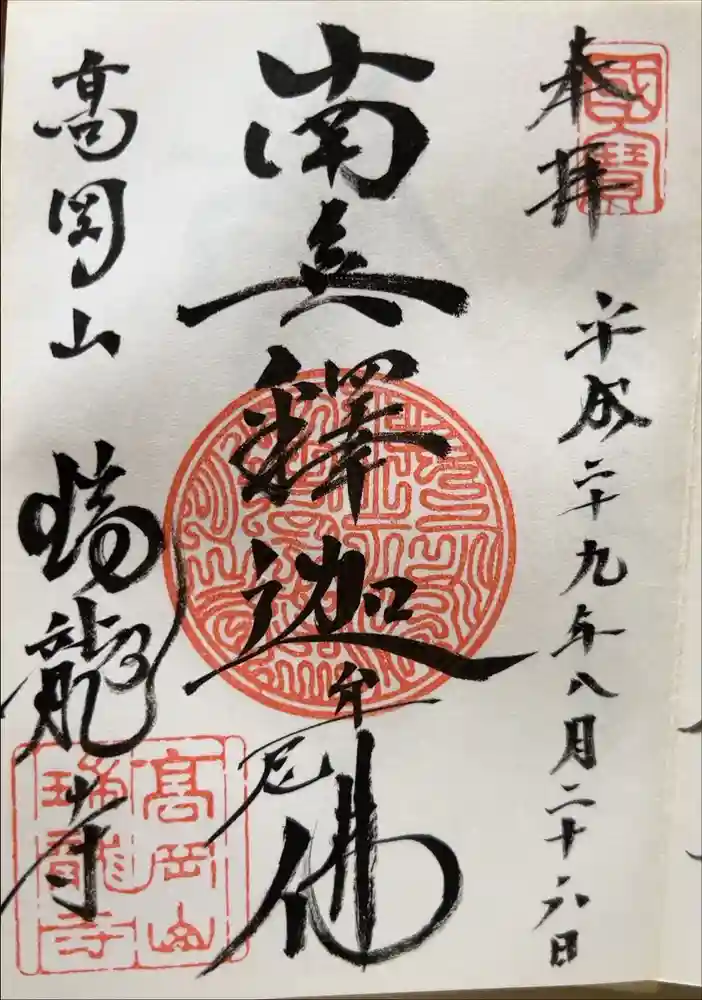 國寶
奉拝
平成二十九年八月二十六日
南無釋迦牟尼佛
高岡山 瑞龍寺
高岡山
瑞龍寺